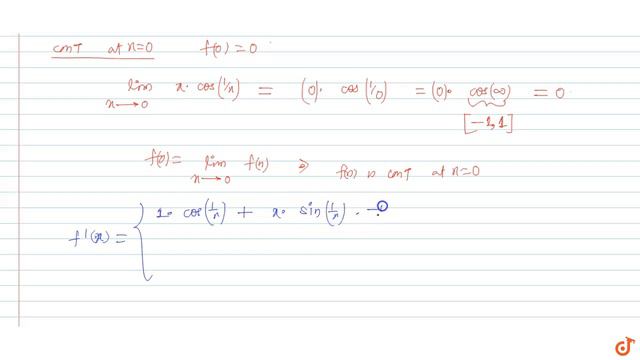 cont at x=0 f(0) = 0
lim x→0 x· cos(1/x) = (0)· cos(1/0) = (0)· cos(∞) = 0
[-1,1]
f(0) = lim x→0 f(x) ⇒ f(x) is cont at x=0
f'(x) = { 1· cos(1/x) + x· sin(1/x) ·